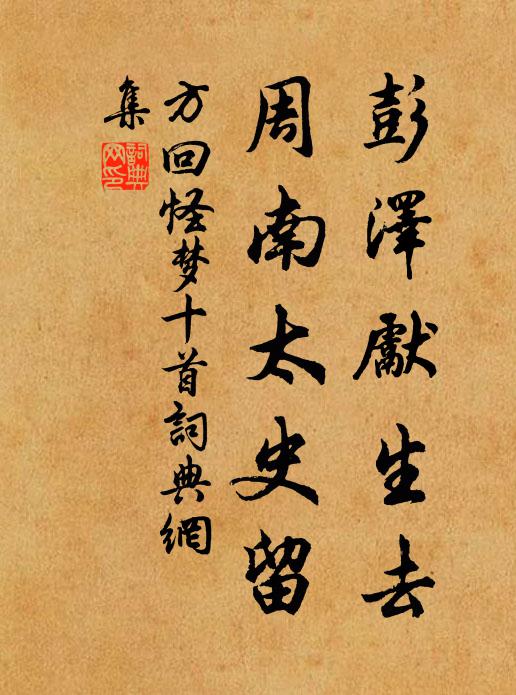 彭澤獻生去
周南太史留
方回怪梦十首詞典網
集
詞典
网印